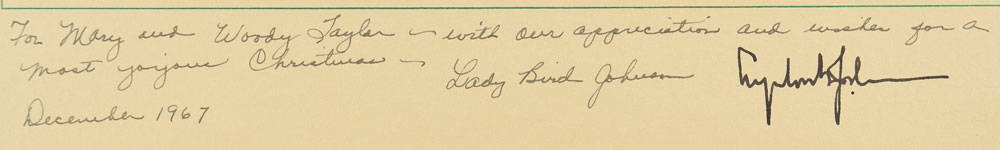 For Mary and Woody Taylor ~ with our appreciation and wishes for a
most joyous Christmas ~ Lady Bird Johnson Lyndon B. Johnson
December 1967